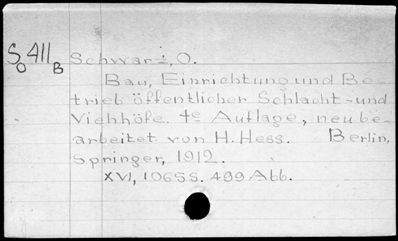 So 411 B Schwarz, O.
Bau, Einrichtung und Be-
trieb öffentlicher Schlacht- und
Viehhöfe. 4e Auflage, neu be-
arbeitet von H. Hess. Berlin,
Springer, 1912.
XVI, 1065S. 499 Abb.